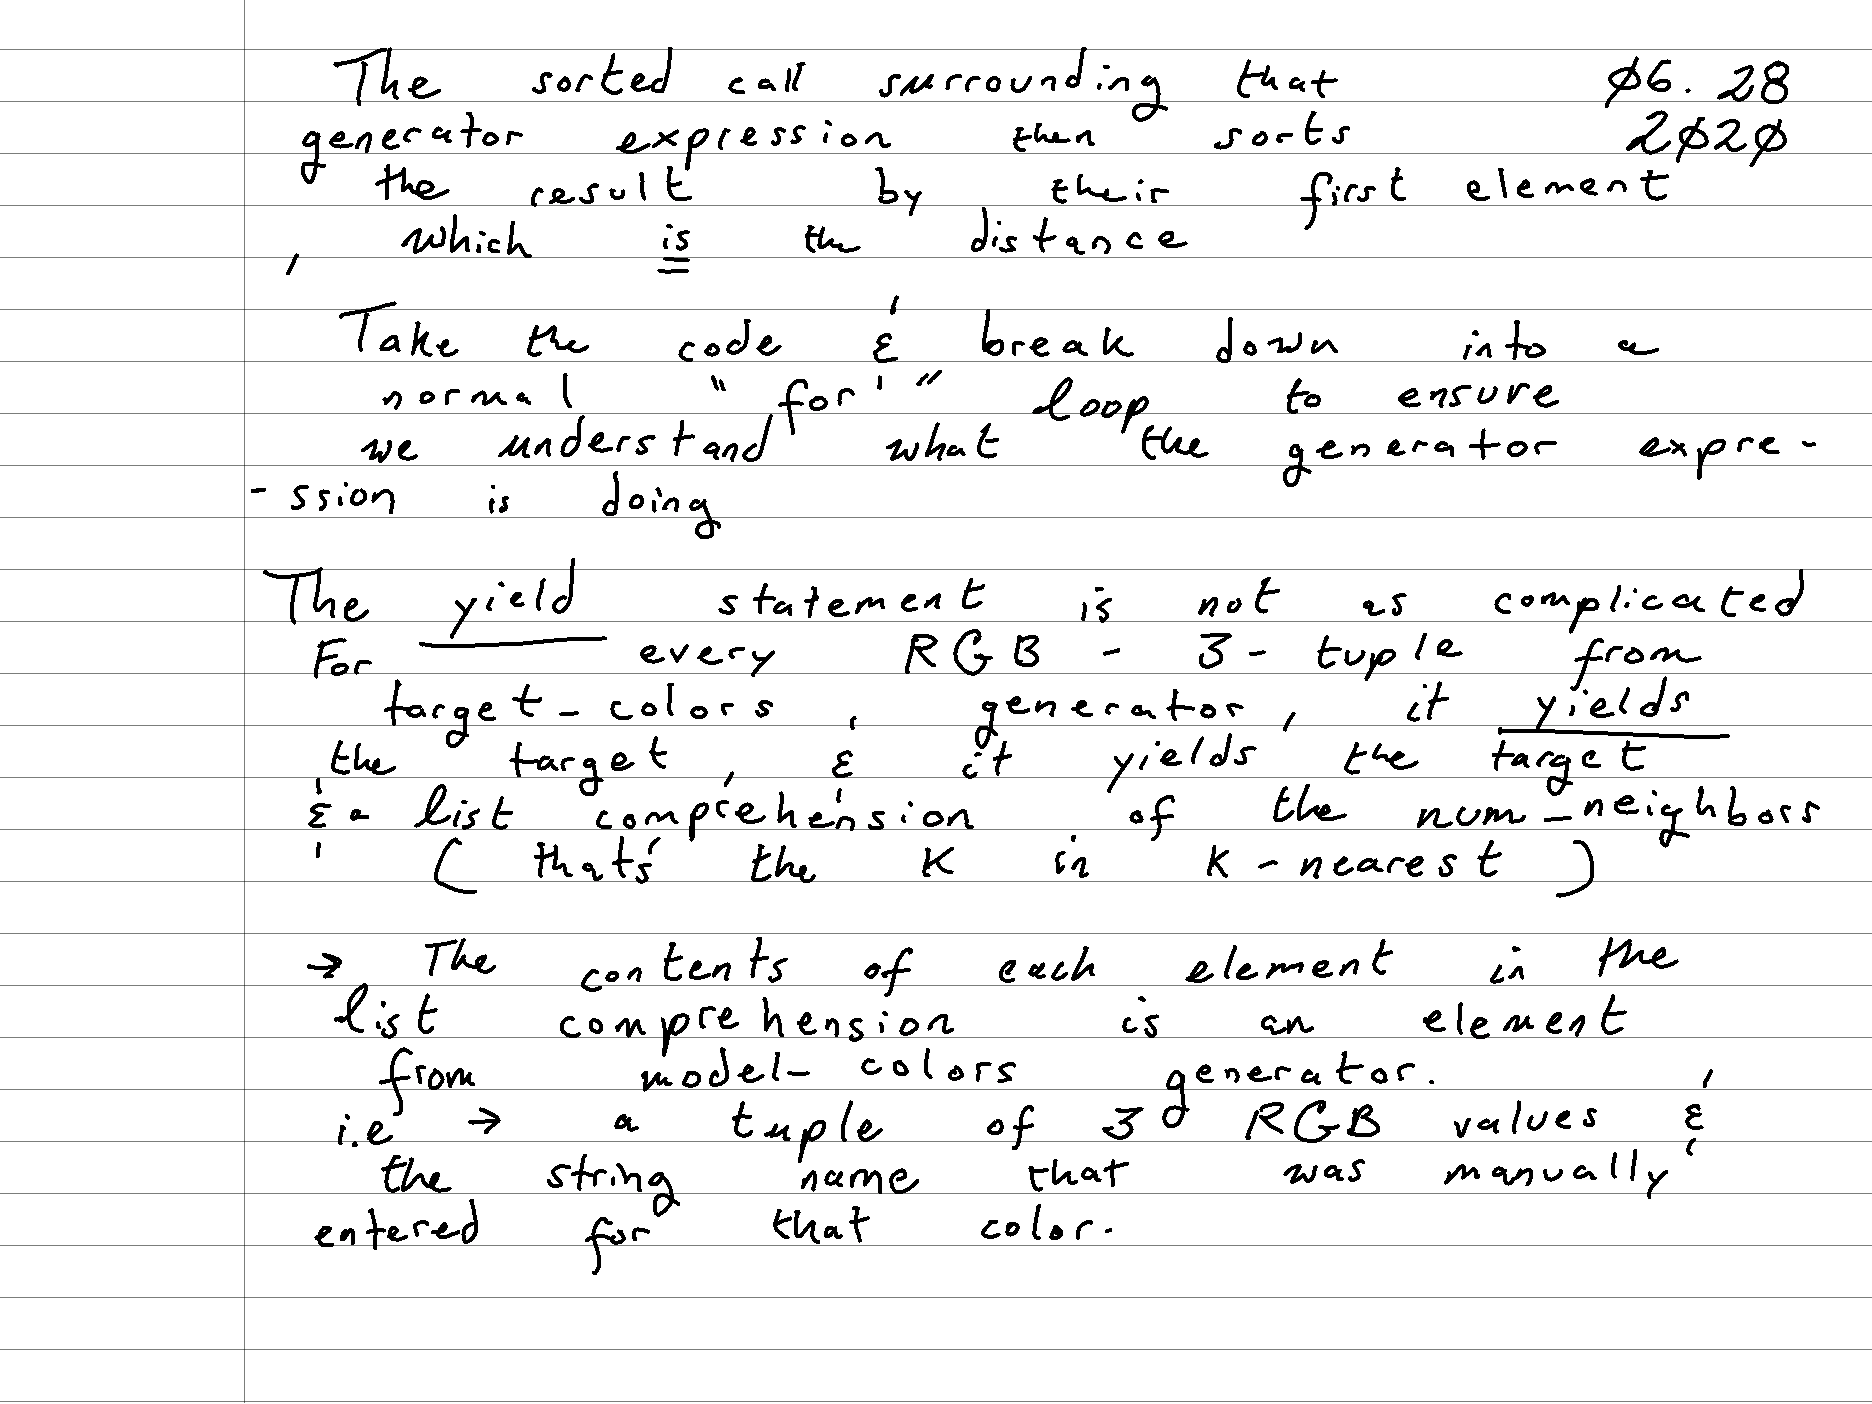 The sorted call surrounding that 06.28
generator expression then sorts 2020
the result by their first element
, which is the distance
Take the code & break down into a
normal "for" loop to ensure
we understand what the generator expre-
-ssion is doing
The yield statement is not as complicated
For every RGB - 3 - tuple from
target_colors, generator, it yields
the target, & it yields the target
& a list comprehension of the num_neighbors
(that's the K in K-nearest)
→ The contents of each element in the
list comprehension is an element
from model_colors generator.
i.e → a tuple of 3 RGB values &
the string name that was manually
entered for that color.